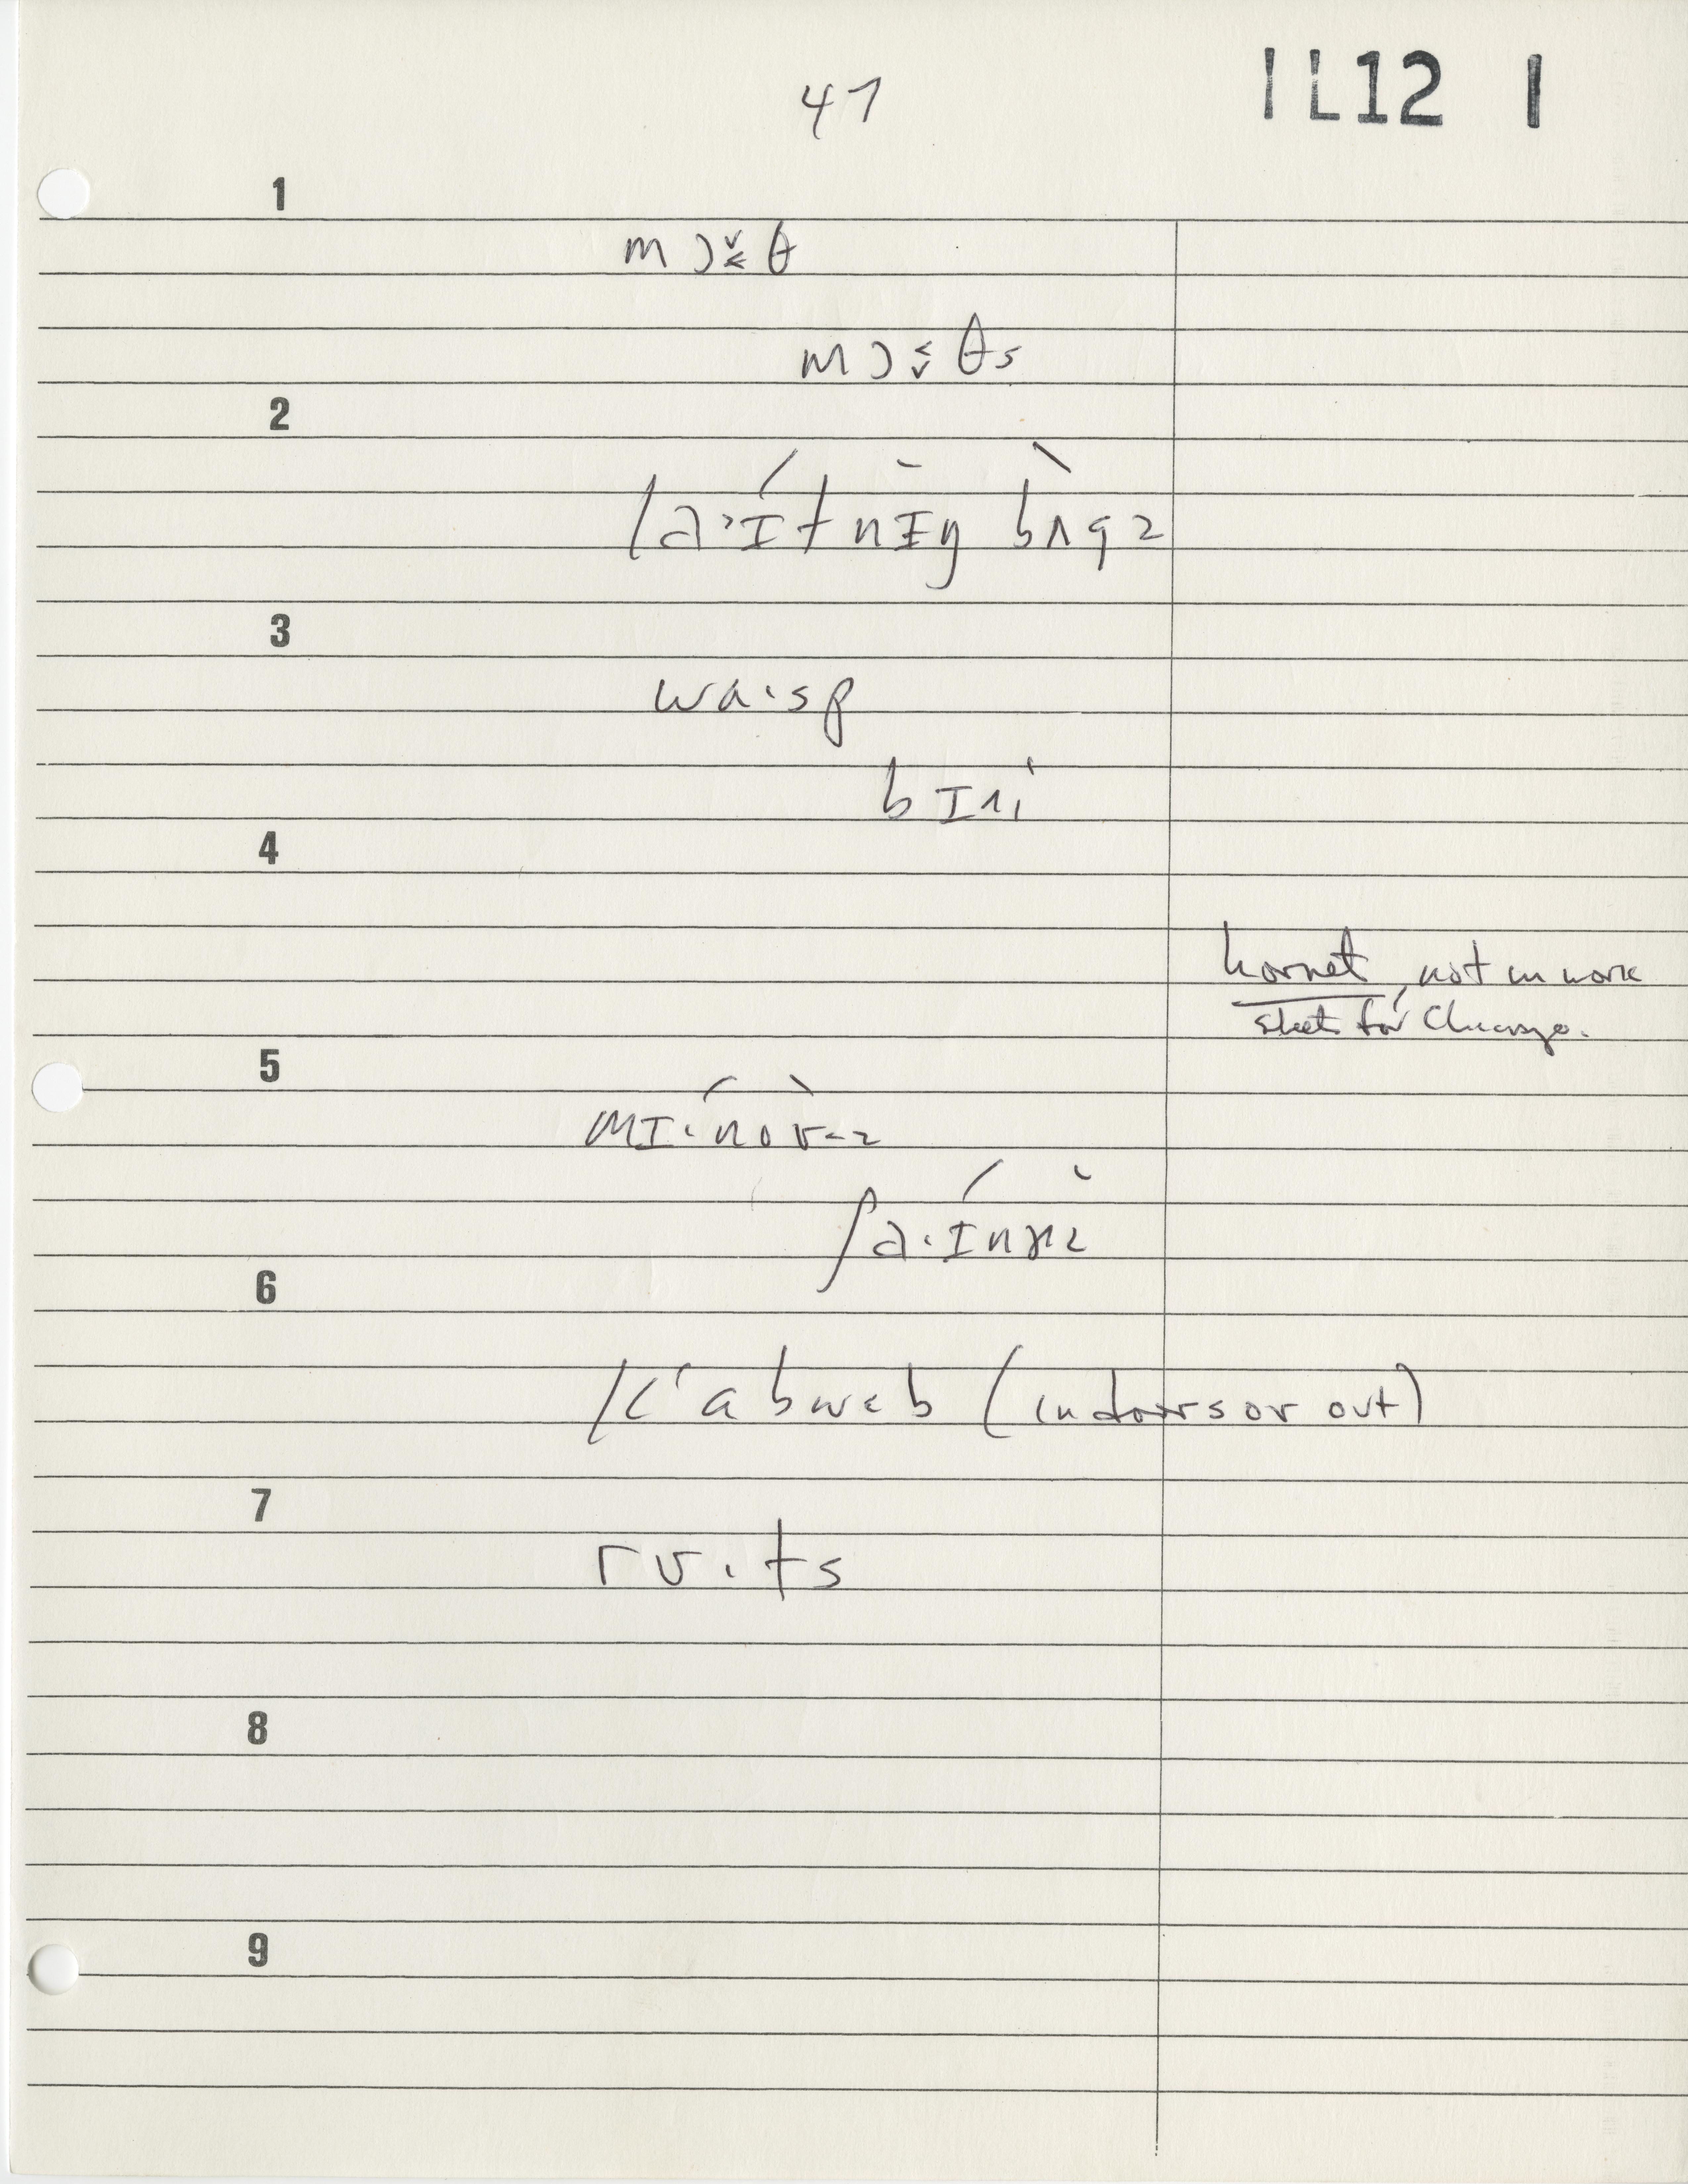 47
IL12 I
1
mɔ˅˂θ
mɔ˂˅θs
2
la˃ɪ́tnɪŋ̄ bʌ̀gz
3
wa·sp
bɪni
4
hornet, not in work
sheets for Chicago.
5
mɪ·nóʊ̀z
ʃa·ɪ́nɚ̀z
6
k‘abwɛb (indoors or out)
7
rʊ·ts
8
9